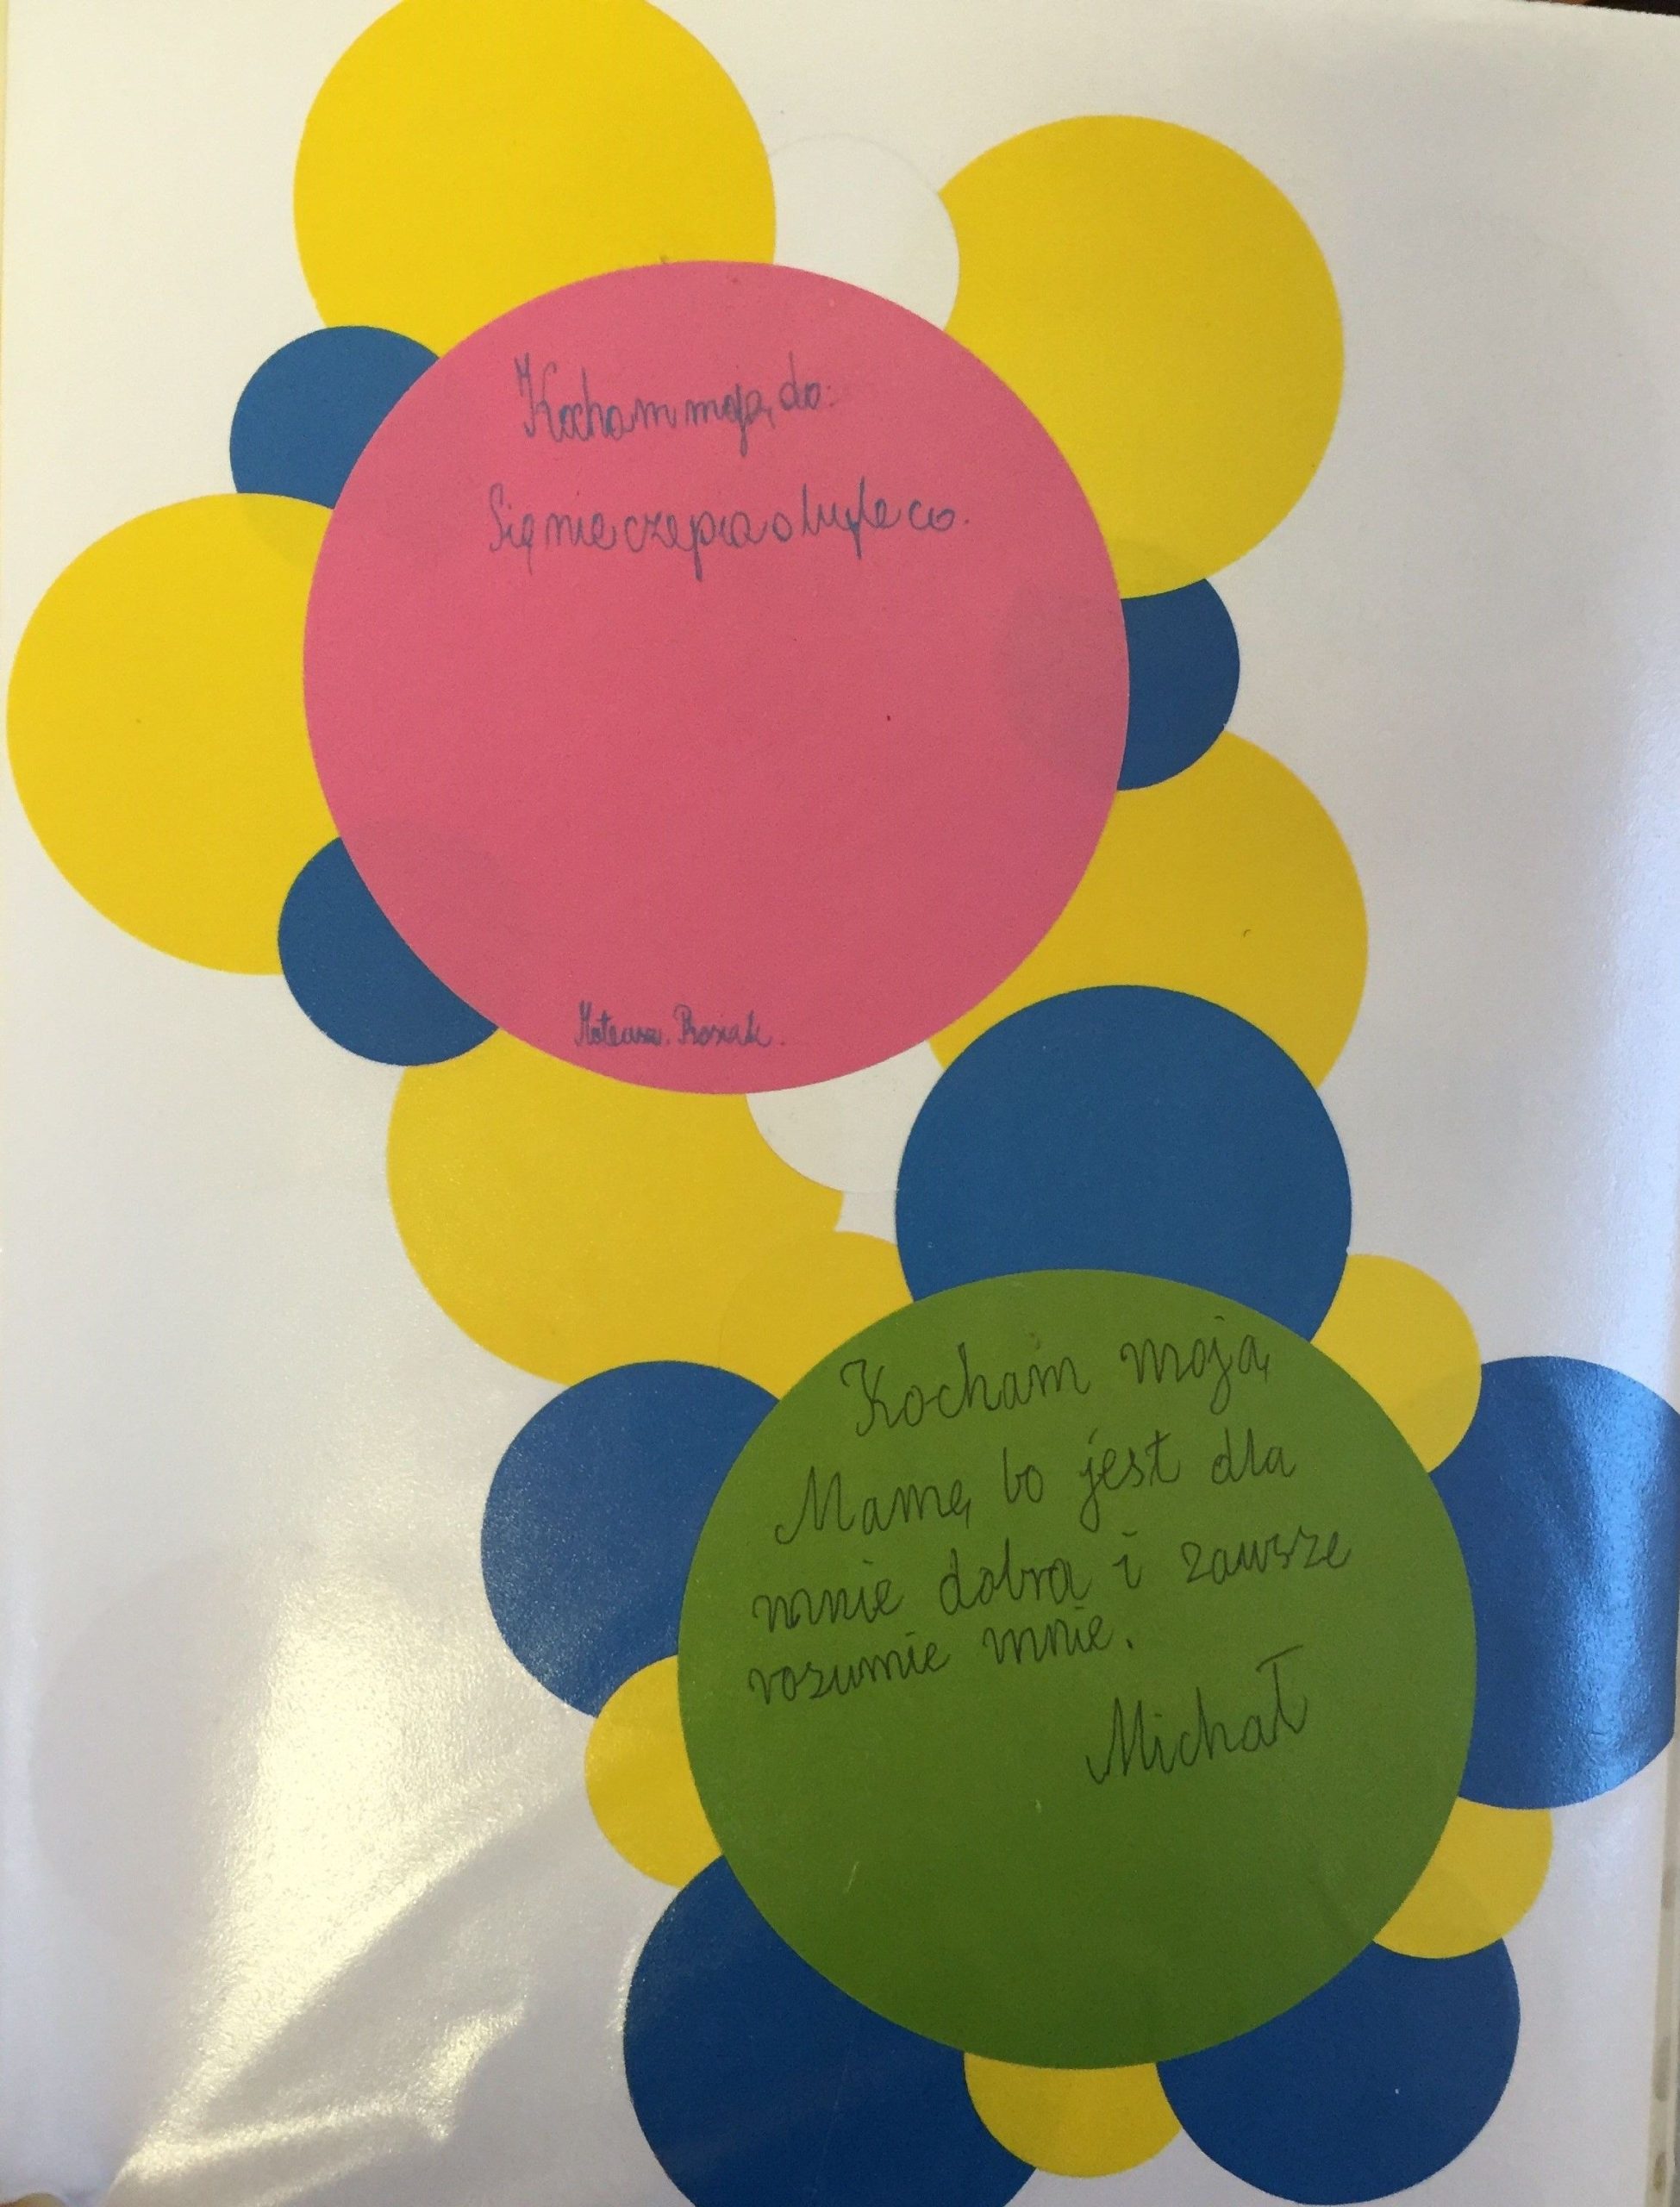 Kocham moją, do:
Się nie czepia o byle co.
Mateusz.
Kocham moją
Mamę bo jest dla
mnie dobra i zawsze
rozumie mnie.
Michał